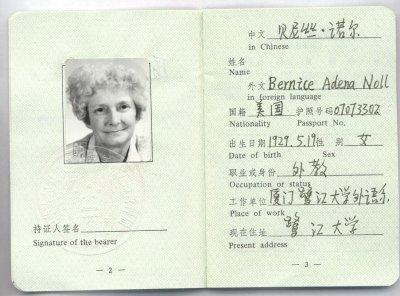 持证人签名
Signature of the bearer
— 2 —
中文 贝尼丝·诺尔
in Chinese
姓名
Name
外文 Bernice Adena Noll
in foreign language
国籍 美国 护照号码 07073302
Nationality Passport No.
出生日期 1929.5.19 性别 女
Date of birth Sex
职业或身份 外教
Occupation or status
工作单位 厦门鹭江大学外语系
Place of work
现在住址 鹭江大学
Present address
— 3 —